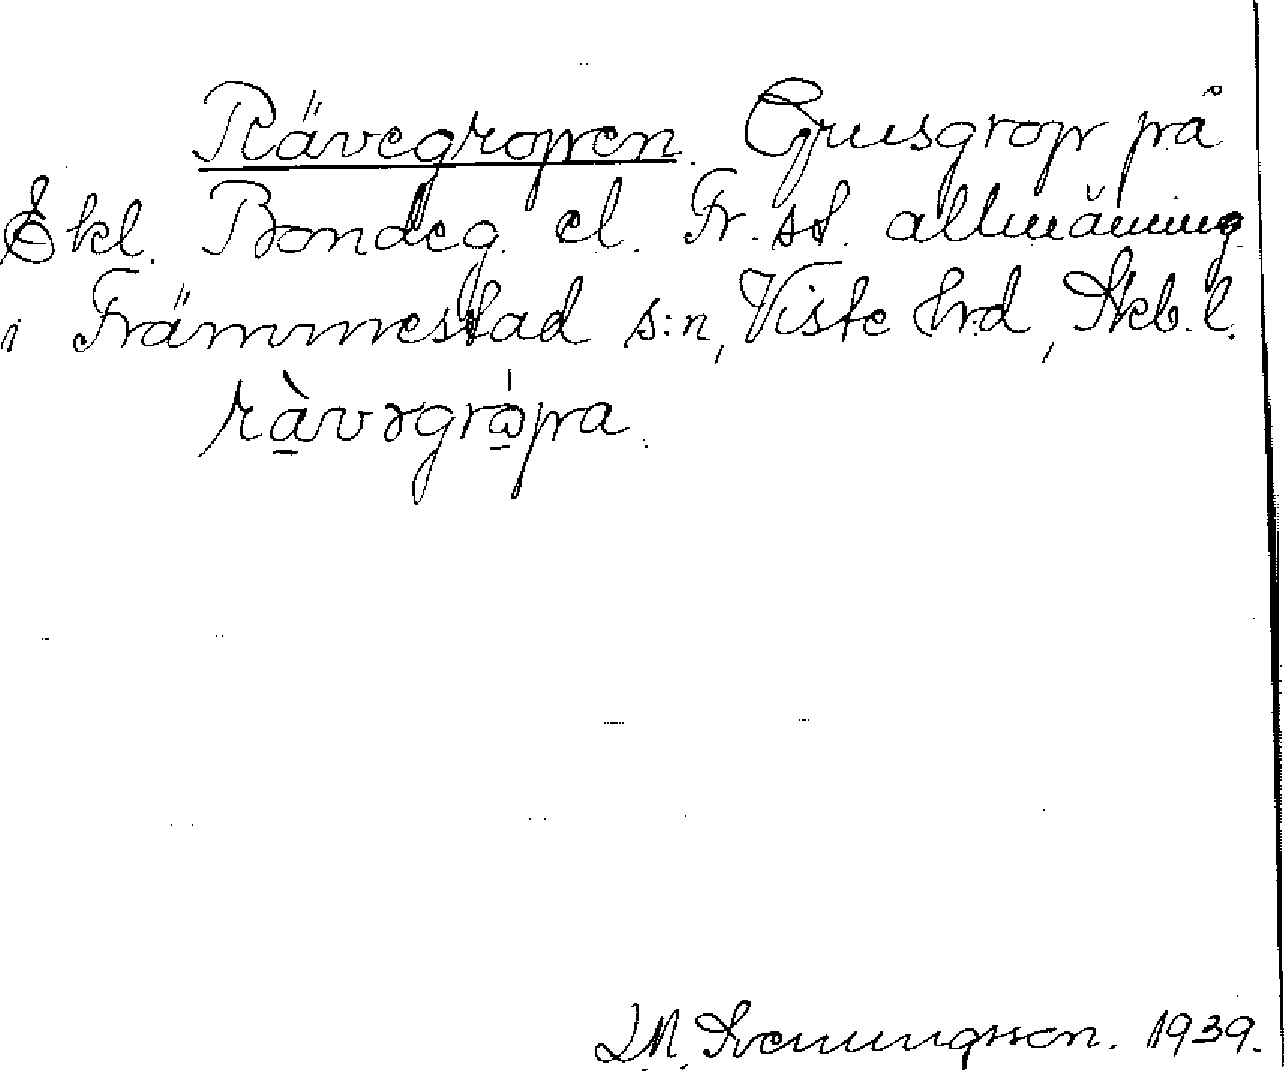 Rävegropen. Grusgrop på
Ekl. Bondeg. el. Fr. sd. allmäning
i Främmestad s:n, Viste hrd, Skb. l.
ràvəgrɷ́pa.
Svenungsson. 1939.